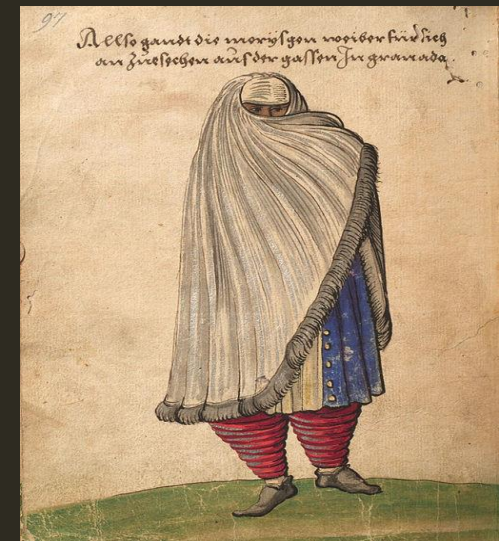 97
Allso gandt die morysgen weiber für sich
an zuesechen auf der gassen In granada